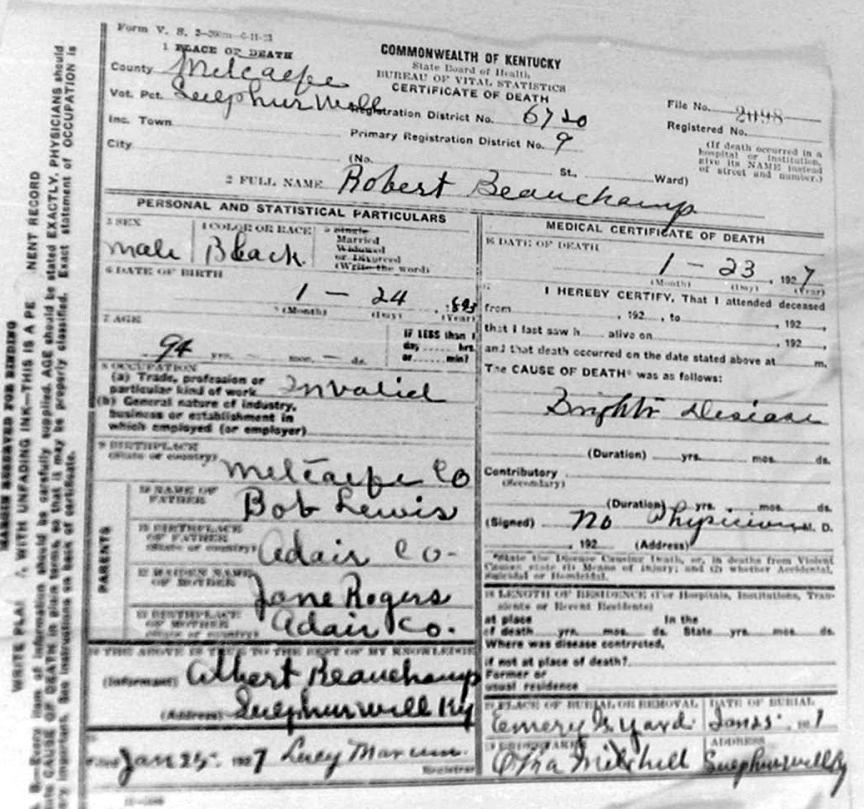 Form V. S.
COMMONWEALTH OF KENTUCKY
State Board of Health
BUREAU OF VITAL STATISTICS
CERTIFICATE OF DEATH
1 PLACE OF DEATH
County Metcalfe
Vot. Pct. Sulphur Well
Inc. Town
City
Registration District No. 6720
Primary Registration District No. 9
(No. St., Ward)
File No. 2098
Registered No.
(If death occurred in a
hospital or institution,
give its NAME instead
of street and number.)
2 FULL NAME Robert Beauchamp
PERSONAL AND STATISTICAL PARTICULARS
3 SEX
male
4 COLOR OR RACE
Black
5 Single
Married
Widowed
or Divorced
(Write the word)
6 DATE OF BIRTH
1 - 24
(Month) (Day) (Year)
7 AGE
94 yrs. mos. ds.
IF LESS than 1
day, hrs.
or min?
8 OCCUPATION
(a) Trade, profession or
particular kind of work Invalid
(b) General nature of industry,
business or establishment in
which employed (or employer)
9 BIRTHPLACE
(State or country) Metcalfe Co
PARENTS
10 NAME OF
FATHER Bob Lewis
11 BIRTHPLACE
OF FATHER
(State or country) Adair Co.
12 MAIDEN NAME
OF MOTHER Jane Rogers
13 BIRTHPLACE
OF MOTHER
(State or country) Adair Co.
14 THE ABOVE IS TRUE TO THE BEST OF MY KNOWLEDGE
(Informant) Albert Beauchamp
(Address) Sulphur Well Ky
15
Filed Jan 25 1927 Lucy Marcum
Registrar
MEDICAL CERTIFICATE OF DEATH
16 DATE OF DEATH
1 - 23, 1927
(Month) (Day) (Year)
17 I HEREBY CERTIFY, That I attended deceased
from , 192 , to , 192 ,
that I last saw h alive on , 192 ,
and that death occurred on the date stated above at m.
The CAUSE OF DEATH* was as follows:
Brights Disease
(Duration) yrs. mos. ds.
Contributory
(Secondary)
(Duration) yrs. mos. ds.
(Signed) no Physician M. D.
, 192 (Address)
*State the Disease Causing Death, or, in deaths from Violent
Causes state (1) Means of Injury; and (2) whether Accidental,
Suicidal or Homicidal.
18 LENGTH OF RESIDENCE (For Hospitals, Institutions, Transients
or Recent Residents)
at place In the
of death yrs. mos. ds. State yrs. mos. ds.
Where was disease contracted,
if not at place of death?
Former or
usual residence
19 PLACE OF BURIAL OR REMOVAL
Emery G. Yard
DATE OF BURIAL
Jan 25
20 UNDERTAKER
Mitchell
ADDRESS
Sulphur Well Ky
MARGIN RESERVED FOR BINDING
WITH UNFADING INK—THIS IS A PE NENT RECORD
B.—Every item of information should be carefully supplied. AGE should be stated EXACTLY. PHYSICIANS should
CAUSE OF DEATH in plain terms, so that it may be properly classified. Exact statement of OCCUPATION is
very important. See instructions on back of certificate.